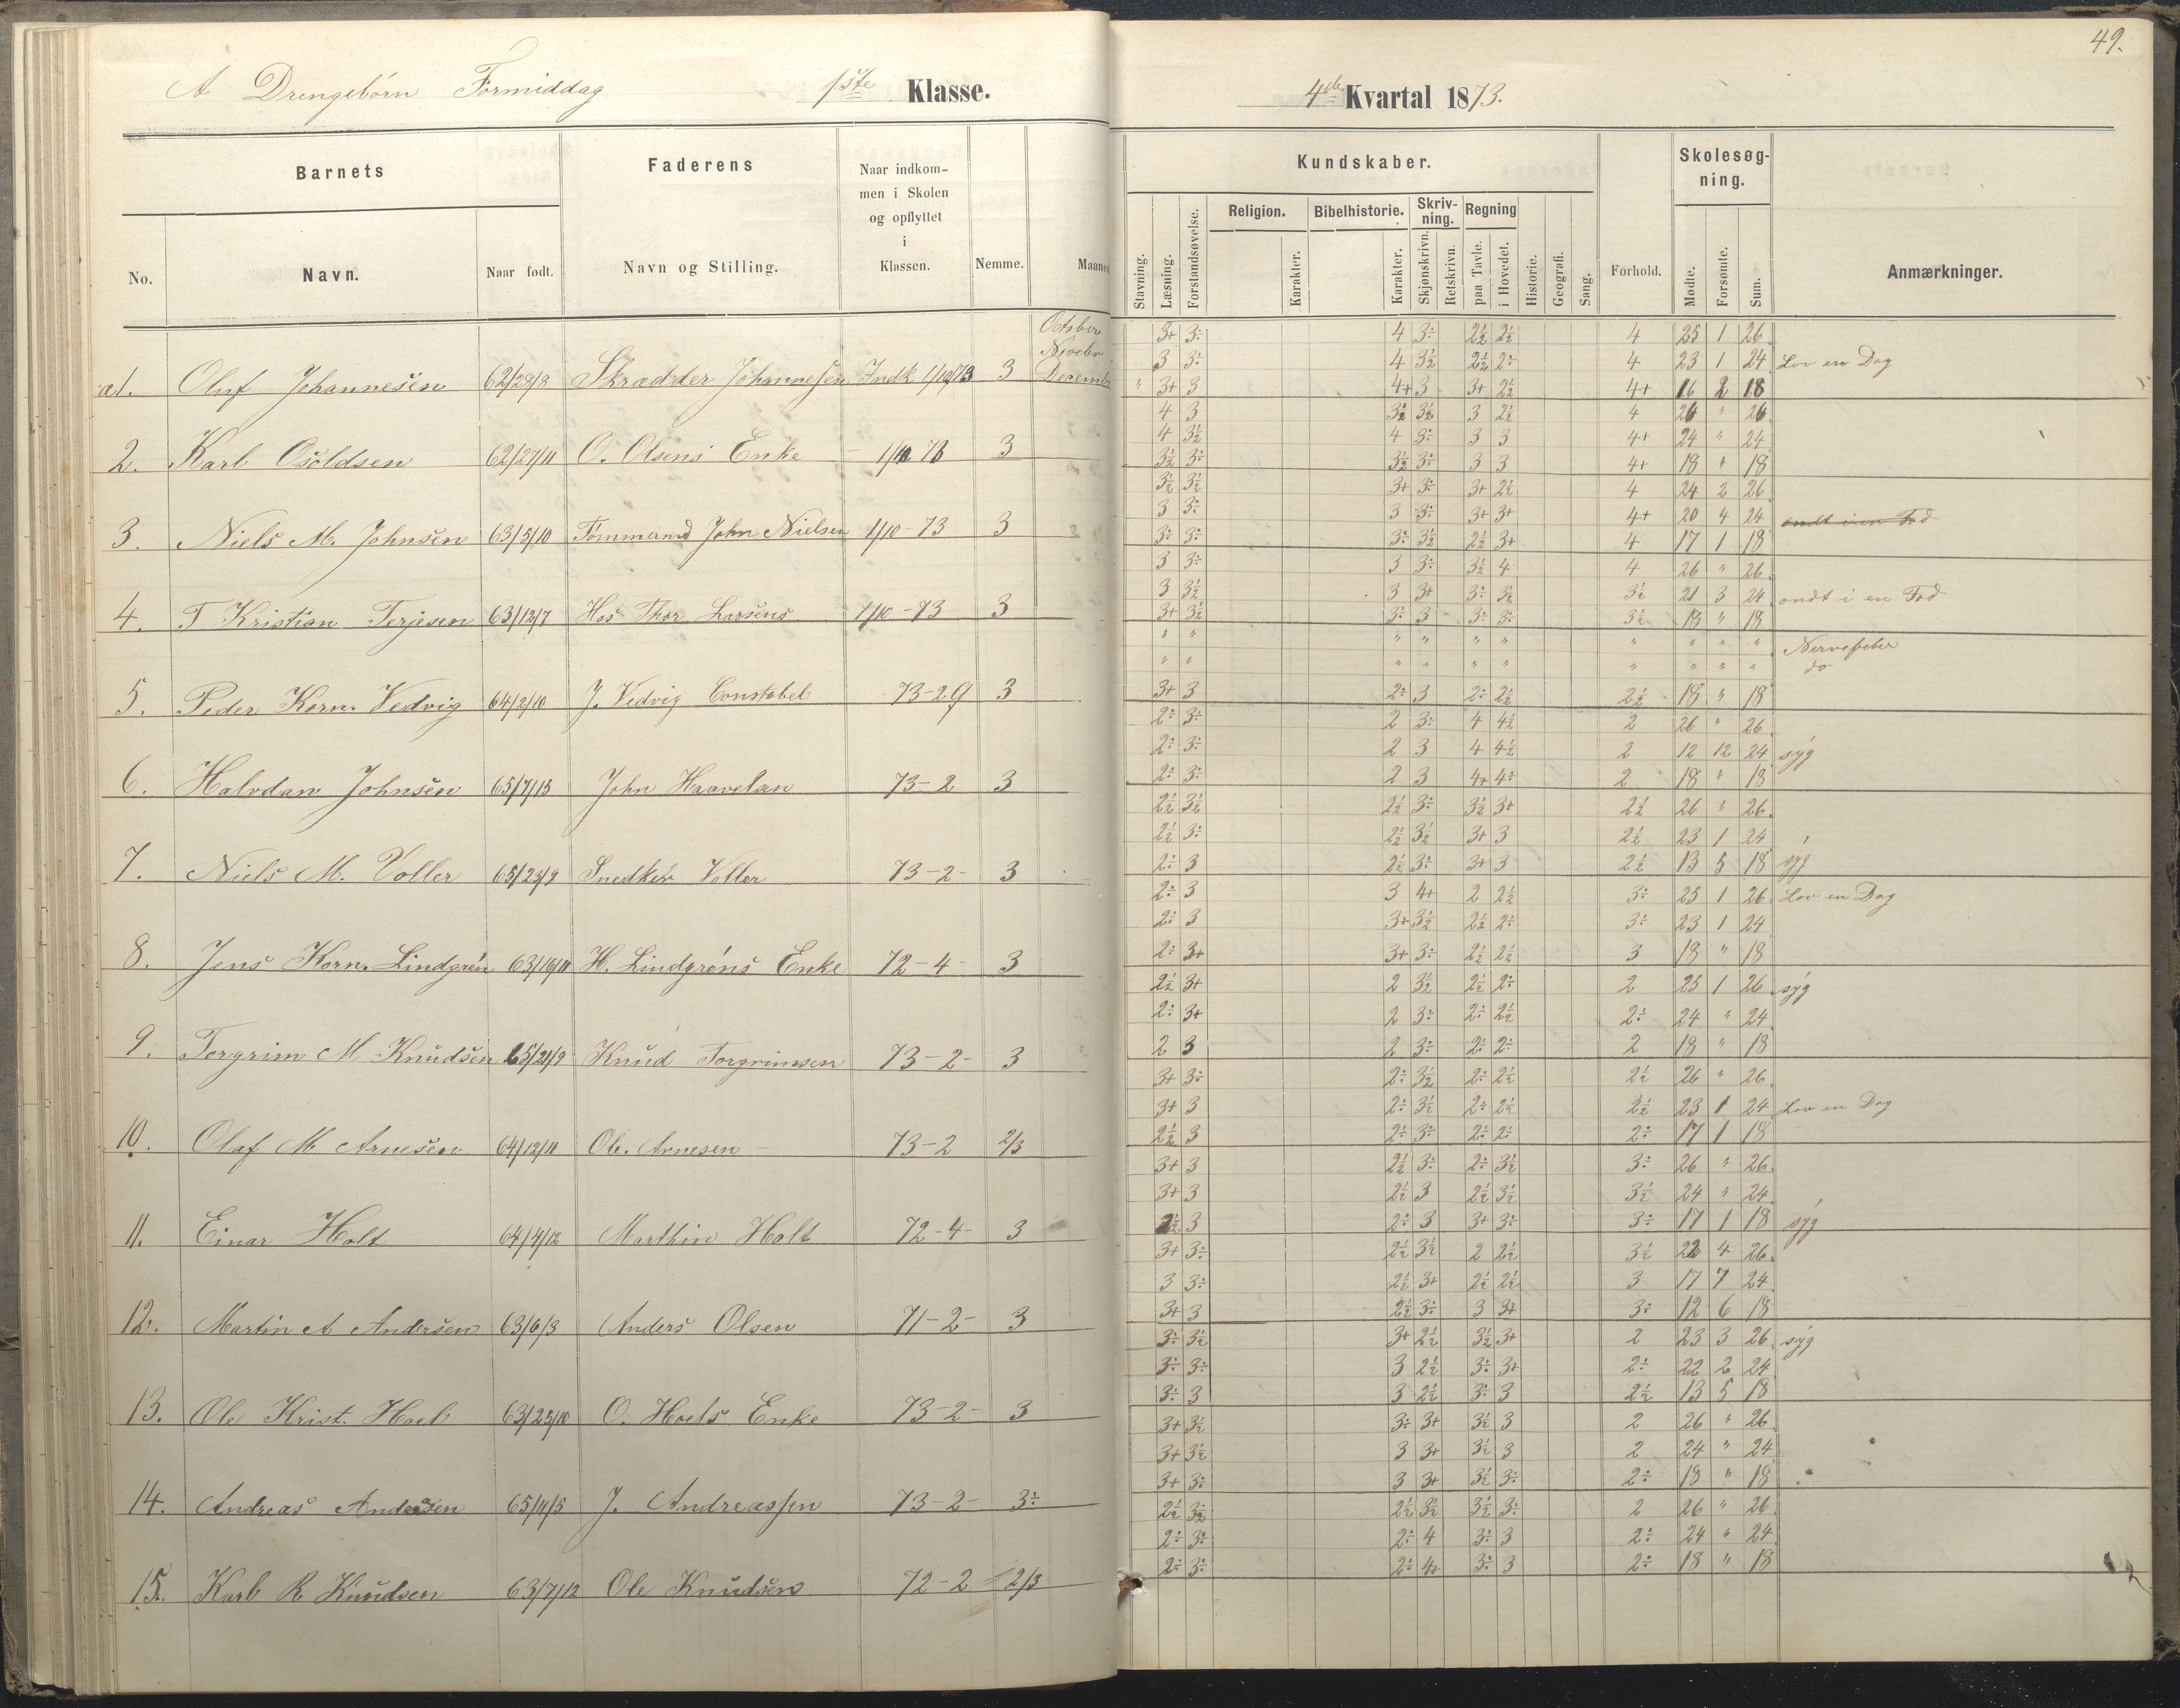 49.
A Drengebørn Formiddag 1ste Klasse. 4de Kvartal 1873.
Barnets Faderens Naar indkommen i Skolen og opflyttet i Klassen. Nemme. Kundskaber. Forhold. Skolesøgning. Anmærkninger.
No. Navn. Naar født. Navn og Stilling. Stavning. Læsning. Forstandsøvelse. Religion. Karakter. Bibelhistorie. Karakter. Skrivning. Skjønskrivn. Retskrivn. Regning paa Tavle. i Hovedet. Historie. Geografi. Sang. Mødte. Forsømte. Sum.
October 3+ 3÷ 4 3÷ 2½ 2½ 4 25 1 26
Novebr 3 3÷ 4 3½ 2½ 2÷ 4 23 1 24 Lov en Dag
a1. Oluf Johannesen 62/28/8 Skrædder Johannesen Indk 1/10/73 3 Decembr " 3+ 3 4+ 3 3+ 2½ 4+ 16 2 18
4 3 3½ 3½ 3 2½ 4 26 " 26
4 3½ 4 3÷ 3 3 4+ 24 " 24
2. Karl Osoldsen 62/27/11 O. Olsens Enke 1/10 73 3 3½ 3÷ 3½ 3÷ 3 3 4+ 18 " 18
3½ 3½ 3+ 3÷ 3+ 2½ 4 24 2 26
3 3÷ 3 3÷ 3+ 3+ 4+ 20 4 24 ondt i en Fod
3. Niels M. Johnsen 63/5/10 Tømmermd John Nielsen 1/10-73 3 3÷ 3÷ 3÷ 3½ 2½ 3+ 4 17 1 18
3 3÷ 3 3÷ 3½ 4 4 26 " 26
3 3½ 3 3+ 3÷ 3½ 3½ 21 3 24 ondt i en Fod
4. T Kristian Terjesen 63/12/7 Hos Thor Larsens 1/10-73 3 3+ 3½ 3÷ 3 3÷ 3÷ 3½ 18 " 18
" " " " " " " " " " Nervefeber
" " " " " " " " " " do
5. Peder Korn. Vedvig 64/2/10 J. Vedvig Constabel 73-29 3 3+ 3 2÷ 3 2÷ 2½ 2½ 18 " 18
2÷ 3÷ 2 3÷ 4 4½ 2 26 " 26
2÷ 3÷ 2 3 4 4½ 2 12 12 24 syg
6. Halvdan Johnsen 65/7/13 John Haavelan 73-2 3 2÷ 3÷ 2 3 4+ 4÷ 2 18 " 18
2½ 3½ 2½ 3÷ 3½ 3+ 2½ 26 " 26
2½ 3÷ 2½ 3½ 3+ 3 2½ 23 1 24
7. Niels M. Voller 65/23/9 Snedker Voller 73-2- 3 2÷ 3 2½ 3÷ 3+ 3 2½ 13 5 18 syg
2÷ 3 3 4+ 2 2½ 3÷ 25 1 26 Lov en Dag
2÷ 3 3+ 3½ 2½ 2÷ 3÷ 23 1 24
8. Jens Korn. Lindgrén 63/16/11 H. Lindgréns Enke 72-4- 3 2÷ 3+ 3+ 3÷ 2½ 2½ 3 18 " 18
2½ 3+ 2 3½ 2½ 2÷ 2 25 1 26 syg
2÷ 3+ 2 3÷ 2÷ 2½ 2÷ 24 " 24
9. Torgrim M Knudsen 65/21/9 Knud Torgrimsen 73-2- 3 2 3 2 3÷ 2÷ 2÷ 2 18 " 18
3+ 3÷ 2÷ 3½ 2÷ 2½ 2½ 26 " 26
3+ 3 2÷ 3½ 2÷ 2½ 2½ 23 1 24 Lov en Dag
10. Olaf M Arnesen 64/12/11 Ole Arnesen 73-2 2/3 2½ 3 2÷ 3÷ 2÷ 2÷ 2÷ 17 1 18
3+ 3 2½ 3÷ 2÷ 3½ 3÷ 26 " 26
3+ 3 2½ 3 2½ 3½ 3½ 24 " 24
11. Einar Holt 64/4/12 Marthin Holt 72-4- 3 2½ 3 2÷ 3 3+ 3÷ 3÷ 17 1 18 syg
3+ 3÷ 2½ 3½ 2 2½ 3½ 22 4 26
3 3÷ 2½ 3+ 2½ 2½ 3 17 7 24
12. Martin A Andersen 63/6/3 Anders Olsen 71-2- 3 3+ 3 2½ 3÷ 3 3+ 3÷ 12 6 18
3÷ 3½ 3+ 2½ 3½ 3+ 2 23 3 26 syg
3÷ 3÷ 3 2½ 3÷ 3+ 2÷ 22 2 24
13. Ole Krist. Hoel 63/25/10 O. Hoels Enke 73-2- 3 3÷ 3 3 2½ 3÷ 3 2½ 13 5 18
3+ 3½ 3÷ 3+ 3½ 3 2 26 " 26
3+ 3½ 3 3+ 3½ 3 2 24 " 24
14. Andreas Andersen 65/11/5 J. Andreassen 73-2- 3÷ 3+ 3÷ 3 3+ 3½ 3÷ 2÷ 18 " 18
2½ 3½ 2½ 3½ 3½ 3÷ 2 26 " 26
2÷ 3÷ 2÷ 4 3÷ 3 2÷ 24 " 24
15. Karl R Knudsen 63/7/12 Ole Knudsen 72-2 2/3 2÷ 3÷ 2÷ 4+ 3÷ 3 2÷ 18 " 18